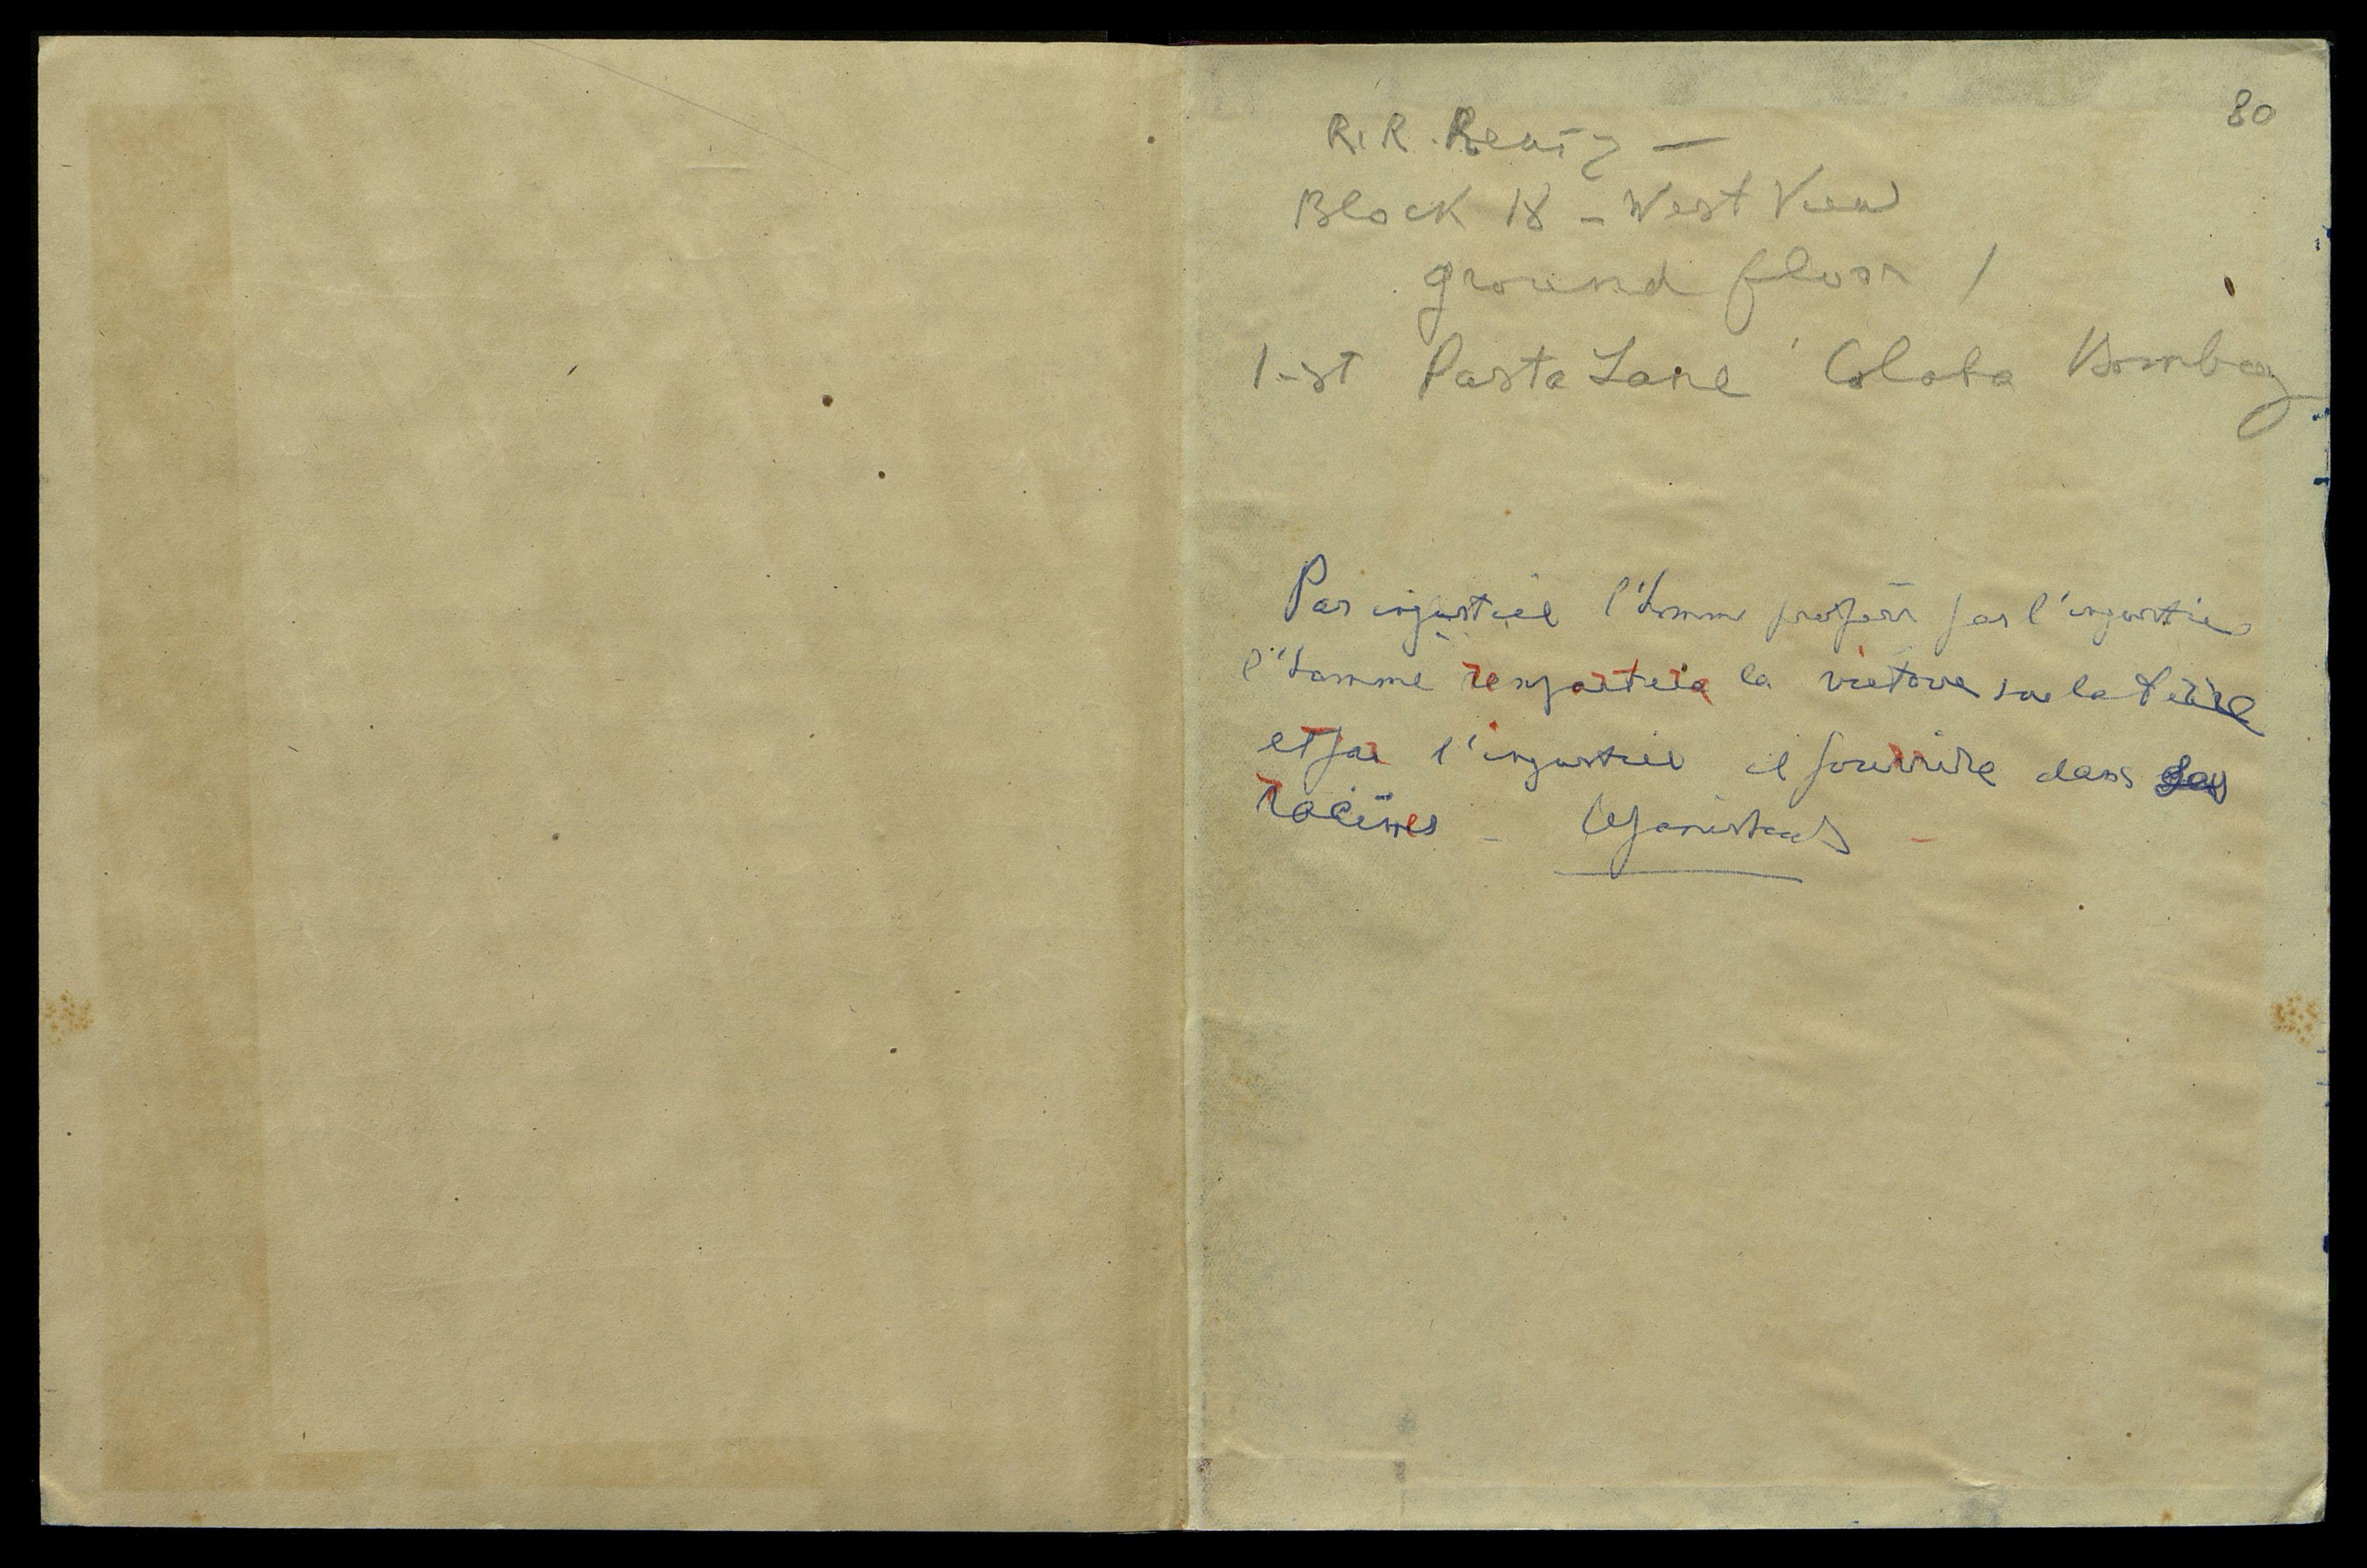 80
R.R.
Block 18 - West View
ground floor /
1-st Pasta Lane Colaba Bombay
Par injustice l'homme prospère par l'injustice
l'homme remportera la victoire sur la terre
et par l'injustice il pourrira dans ses
racines - Upanishads -